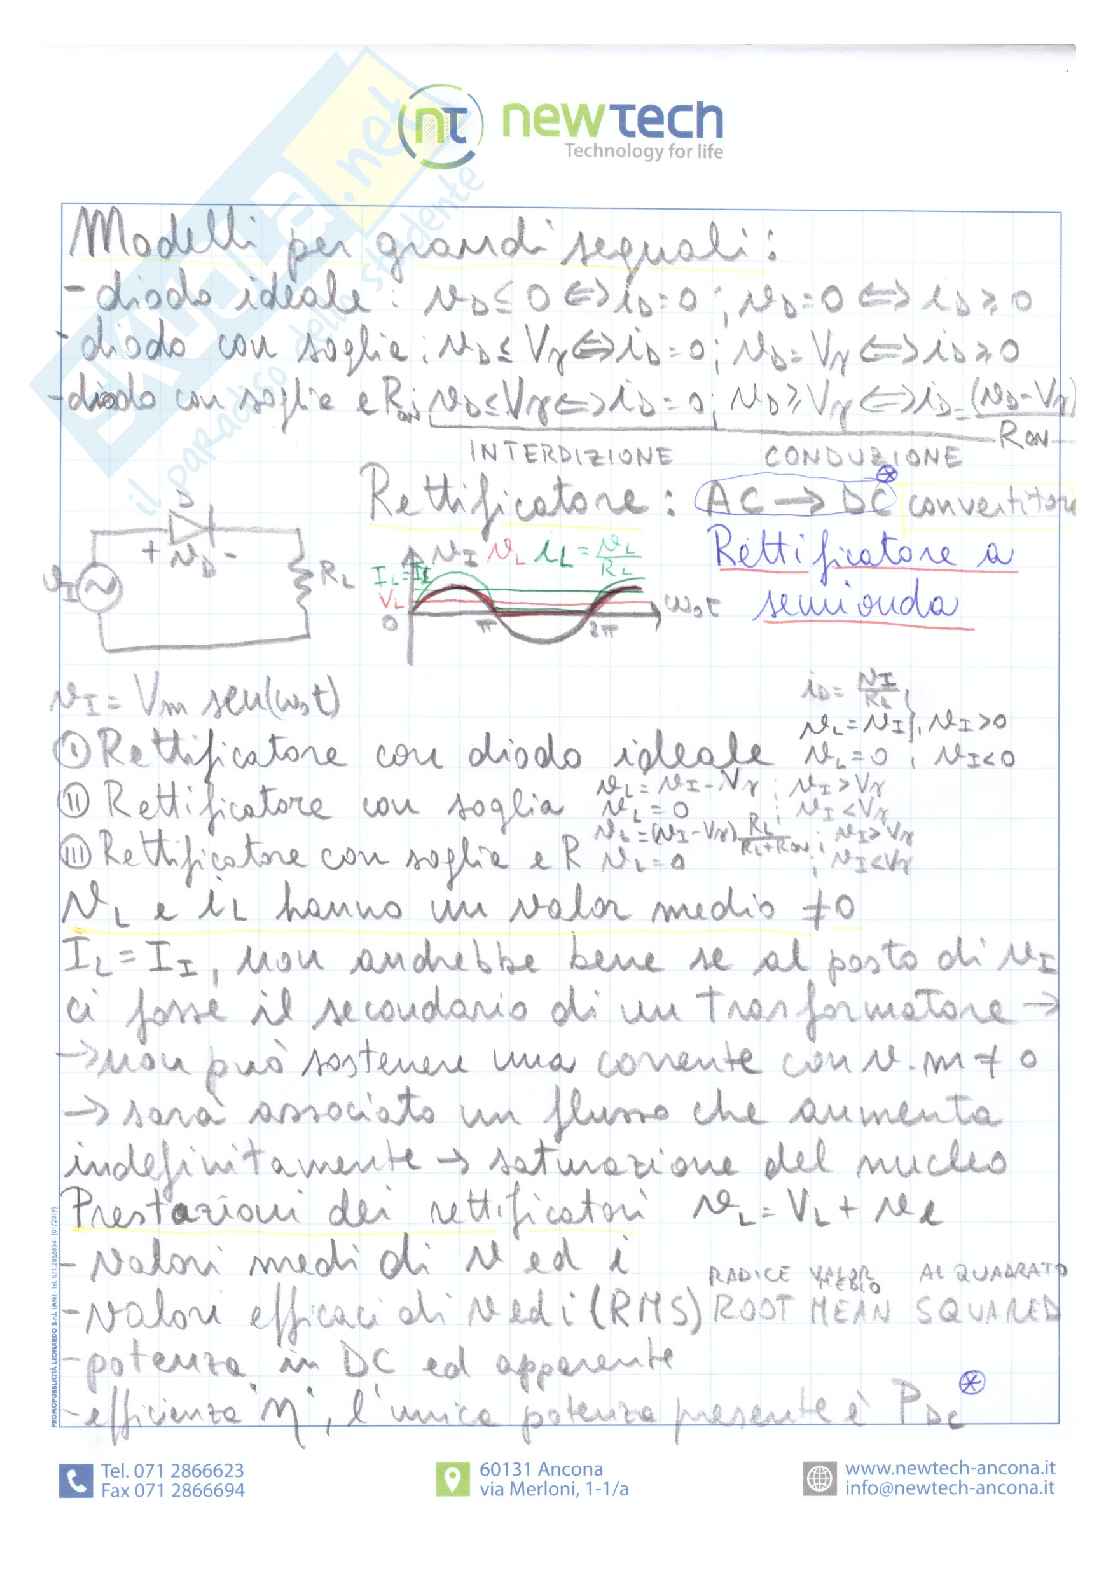 nτ newtech
Technology for life
SKUOLA.net
il paradiso dello studente
Modelli per grandi segnali:
- diodo ideale: vD ≤ 0 ⇔ iD = 0 ; vD = 0 ⇔ iD ≥ 0
- diodo con soglia: vD ≤ Vγ ⇔ iD = 0; vD = Vγ ⇔ iD ≥ 0
- diodo con soglia e RON: vD ≤ Vγ ⇔ iD = 0; vD ≥ Vγ ⇔ iD = (vD - Vγ) / RON
INTERDIZIONE CONDUZIONE
Rettificatore: AC → DC convertitore
Rettificatore a
semionda
D
+ vD -
vI
RL
vI vL iL = vL / RL
IL = II
VL
0 π 2π ω0t
vI = Vm sen(ω0t)
iD = vI / RL
I Rettificatore con diodo ideale vL = vI ; vI > 0
vL = 0 ; vI < 0
II Rettificatore con soglia vL = vI - Vγ ; vI > Vγ
vL = 0 ; vI < Vγ
III Rettificatore con soglia e R vL = (vI - Vγ) RL / RL + RON ; vI > Vγ
vL = 0 ; vI < Vγ
vL e iL hanno un valor medio ≠ 0
IL = II, non andrebbe bene se al posto di vI
ci fosse il secondario di un trasformatore →
→ non può sostenere una corrente con v.m ≠ 0
→ sarà associato un flusso che aumenta
indefinitamente → saturazione del nucleo
Prestazioni dei rettificatori vL = VL + vl
- valori medi di v ed i
RADICE VALOR MEDIO AL QUADRATO
- valori efficaci di v ed i (RMS) ROOT MEAN SQUARED
- potenza in DC ed apparente
- efficienza "η", l'unica potenza presente è PDC
Tel. 071 2866623
Fax 071 2866694
60131 Ancona
via Merloni, 1-1/a
www.newtech-ancona.it
info@newtech-ancona.it